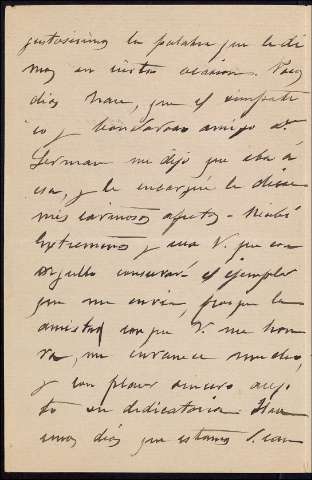 gustosisimo la palabra que le di
mos en cierta ocasion. Pocos
dias hace, que el simpati
co y bondadoso amigo D.
German me dijo que iba á
esa, y le encargué le diera
mis cariñosos afectos - Recibí
Extremeños y crea V. que con
orgullo conservaré el ejemplar
que me envia, porque la
amistad con que V. me hon
ra, me envanece mucho,
y con placer sincero acep
to su dedicatoria Hace
unos dias que estamos